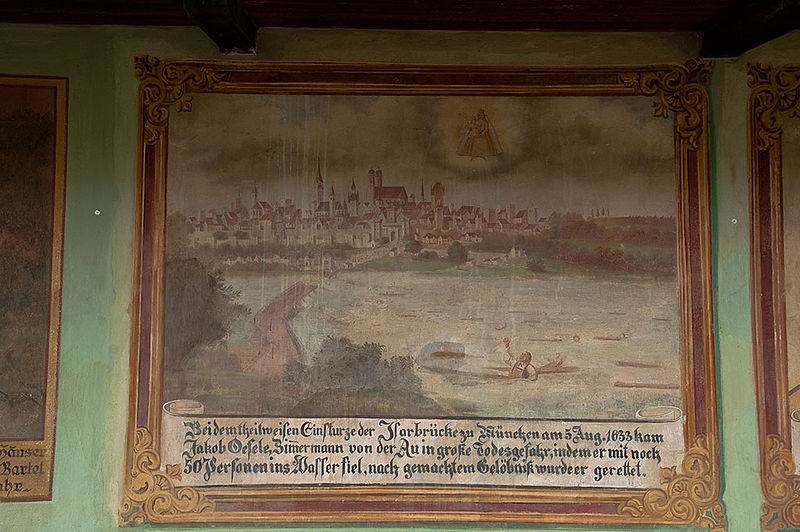 Bei dem theilweisen Einsturze der Isarbrücke zu München am 5 Aug. 1633 kam
Jakob Oesele, Zimmermann von der Au in große Todesgefahr, indem er mit noch
50 Personen ins Wasser fiel, nach gemachtem Gelöbniß wurde er gerettet.
Häuser
Bartol